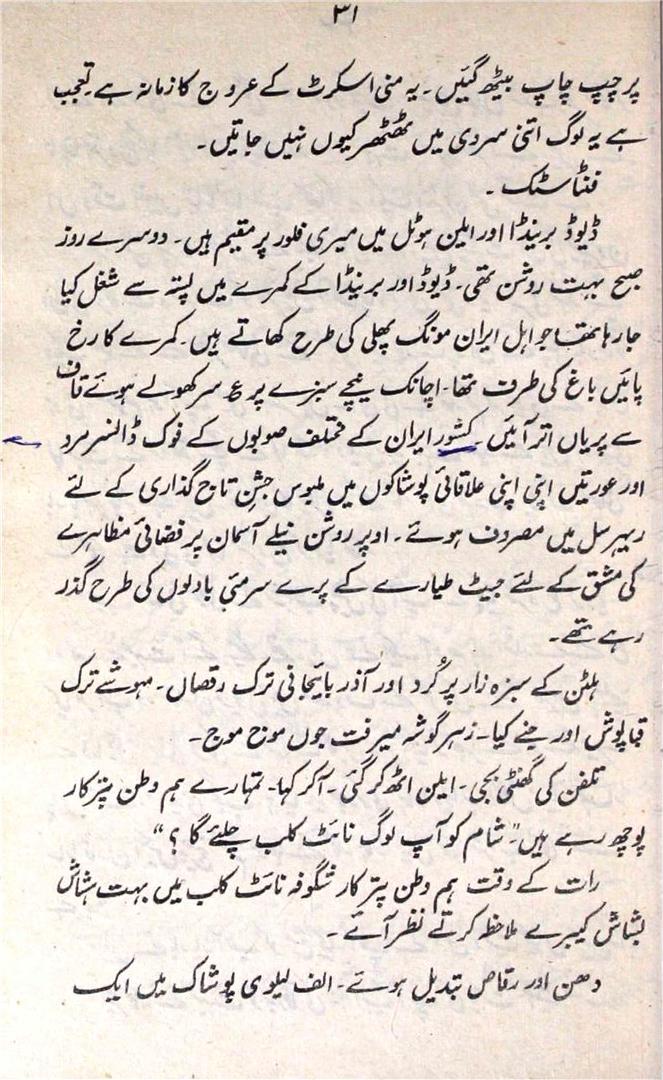 ۳۱
پر چپ چاپ بیٹھ گئیں ۔ یہ منی اسکرٹ کے عروج کا زمانہ ہے۔ تعجب
ہے یہ لوگ اتنی سردی میں ٹھٹھر کیوں نہیں جاتیں ۔
فنٹاسٹک ۔
ڈیوڈ برینڈا اور ایلن ہوٹل میں میری فلور پر مقیم ہیں۔ دوسرے روز
صبح بہت روشن تھی۔ ڈیوڈ اور برینڈا کے کمرے میں پستہ سے شغل کیا
جا رہا تھا جو اہل ایران مونگ پھلی کی طرح کھاتے ہیں۔ کمرے کا رخ
پائیں باغ کی طرف تھا۔ اچانک نیچے سبزے پر ع سر کھولے ہوئے قاف
سے پریاں اتر آئیں ۔ کشور ایران کے مختلف صوبوں کے فوک ڈانسر مرد
اور عورتیں اپنی اپنی علاقائی پوشاکوں میں ملبوس جشنِ تاج گذاری کے لئے
ریہرسل میں مصروف ہوئے ۔ اوپر روشن نیلے آسمان پر فضائی مظاہرے
کی مشق کے لئے جیٹ طیارے کے پرے سرمئی بادلوں کی طرح گذر
رہے تھے۔
ہلٹن کے سبزہ زار پر کُرد اور آذر بائیجانی ترک رقصاں ۔ مہوشے ترک
قباپوش اور خنے کیا۔ زہر گوشہ میرفت جوں موج موج ۔
تلفن کی گھنٹی بجی ۔ ایلن اٹھ کر گئی ۔ آکر کہا۔ تمہارے ہم وطن پترکار
پوچھ رہے ہیں "۔ شام کو آپ لوگ نائٹ کلب چلئے گا ؟ "
رات کے وقت ہم وطن پتر کار شگوفہ نائٹ کلب میں بہت ہشاش
بشاش کیبرے ملاحظہ کرتے نظر آئے ۔
دھن اور رقاص تبدیل ہوئے ۔ الف لیلوی پوشاک میں ایک